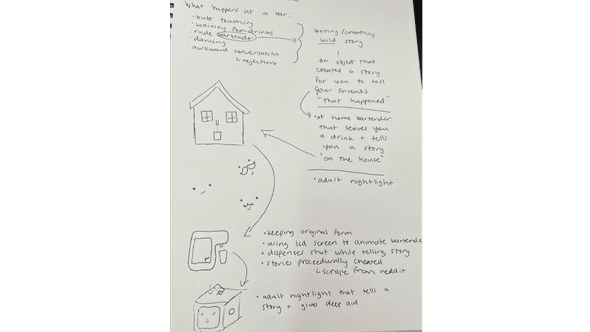 What happens at a bar:
• butt touching
• waiting for drinks
• rude bartender
• dancing
awkward conversation
↳ rejections
wild story
an object that
created a story
for you to tell
your friends
"that happened"
• at home bartender
that serves you
a drink + tells
you a story
"on the house"
• adult nightlight
• keeping original form
• using lcd screen to animate bartende
• dispenses shot while telling story
• stories procedurally created
↳ scrape from reddit
• adult nightlight that tells a
story + gives sleep aid